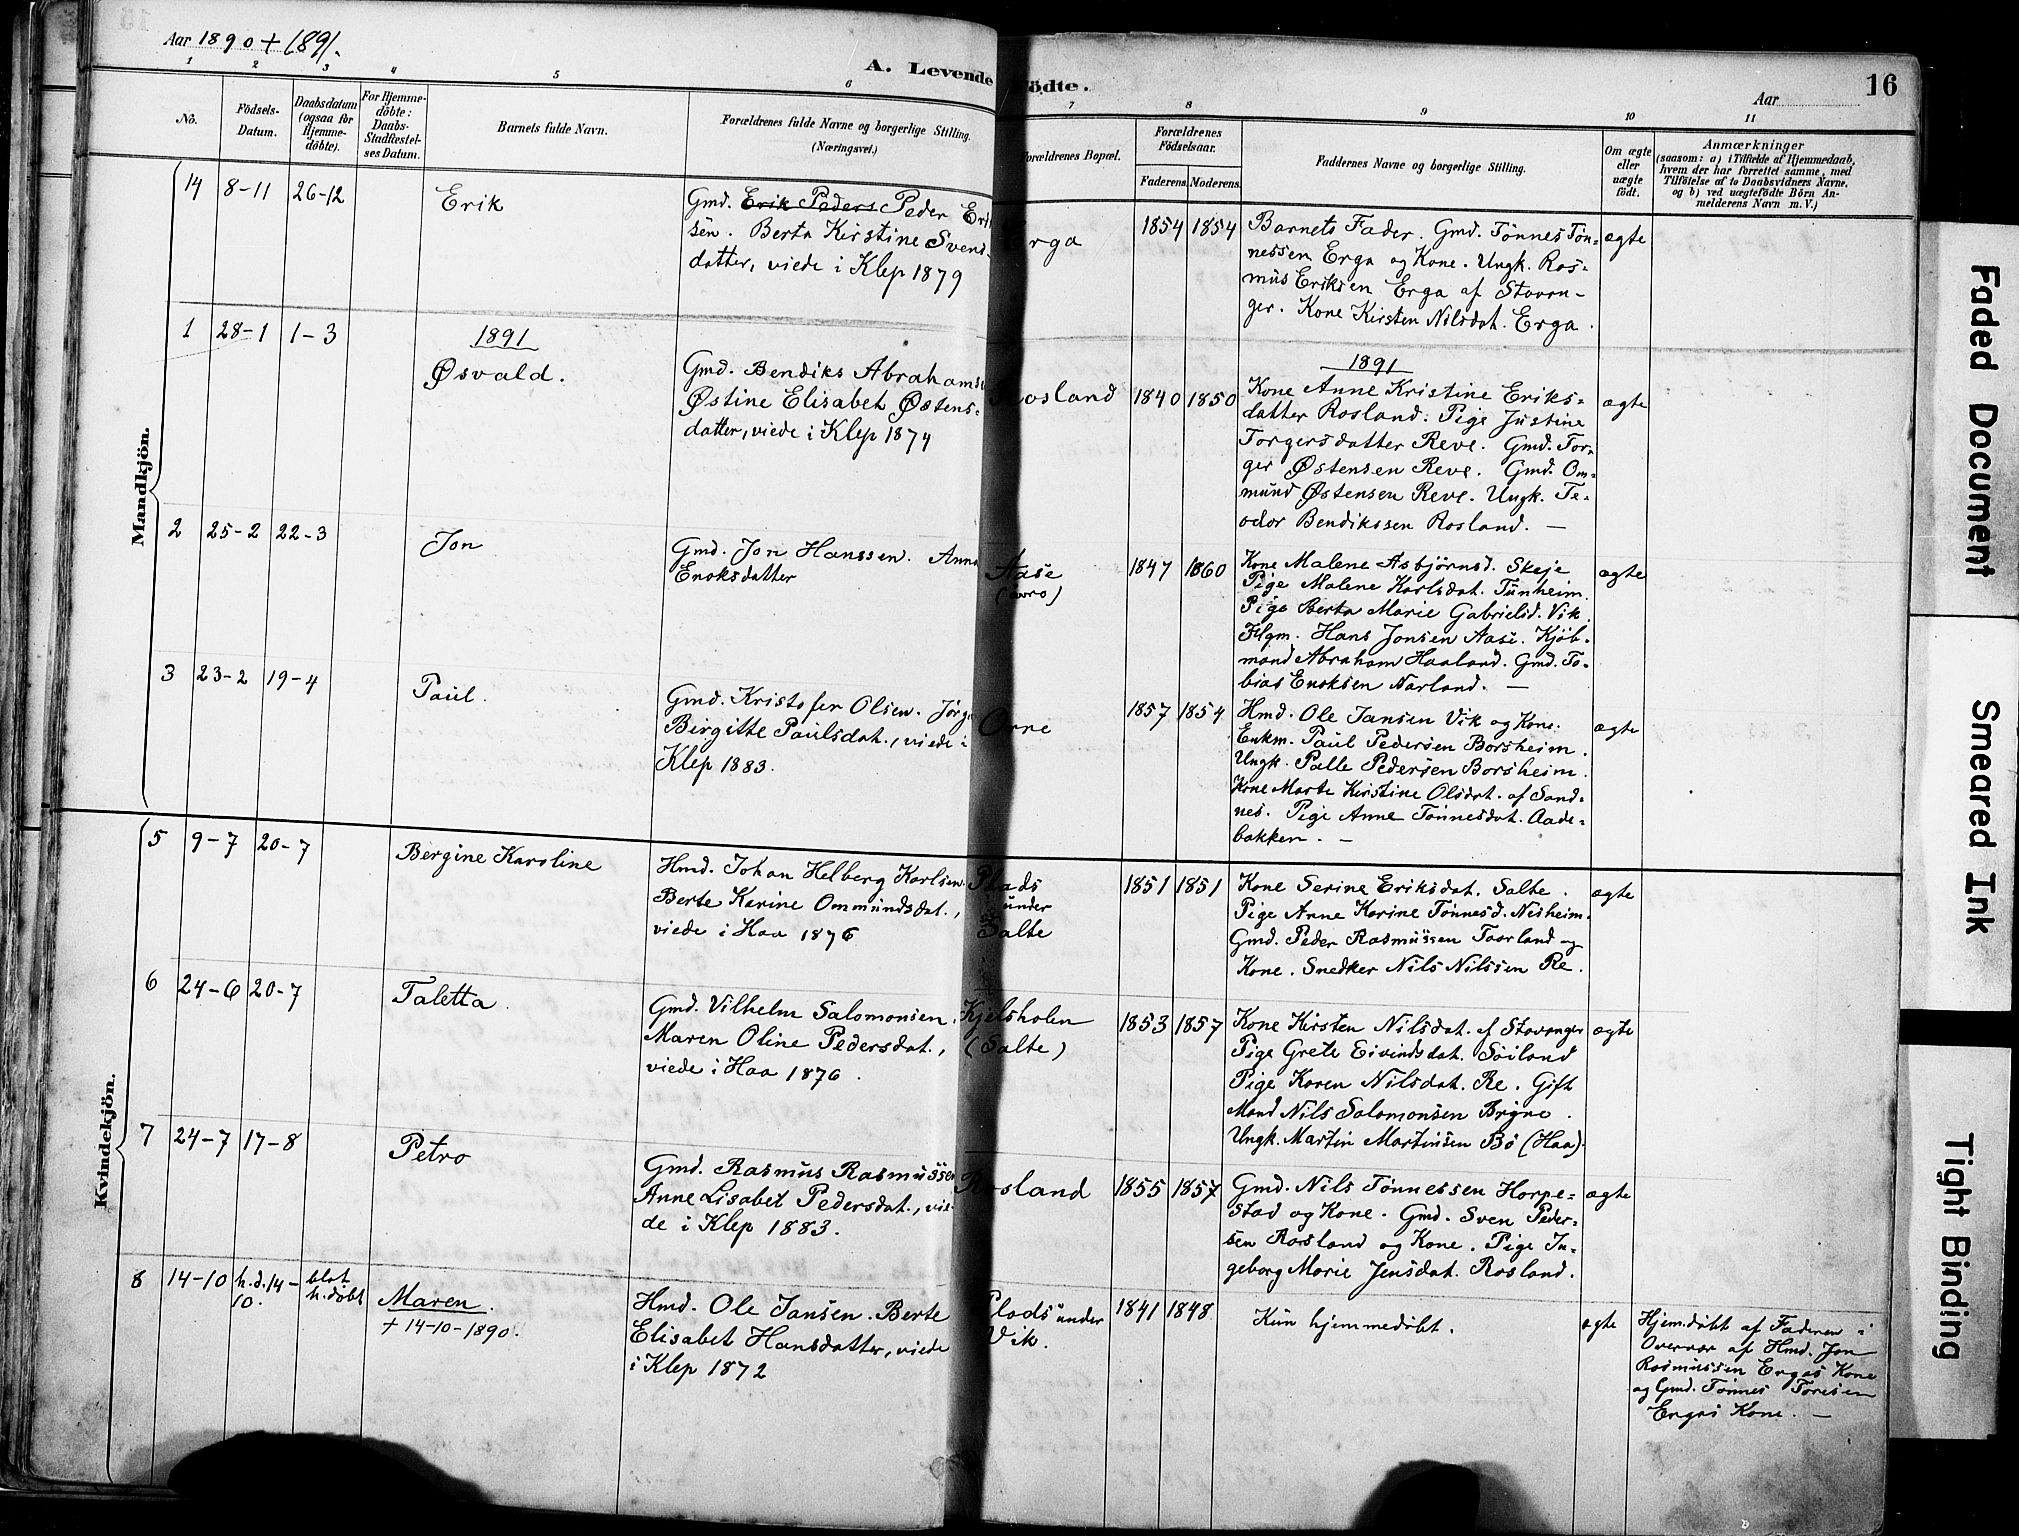 Aar 1890 + 1891.
A. Levende Födte.
Aar
16
1 2 3 4 5 6 7 8 9 10 11
No.
Födsels-
Datum.
Daabsdatum
(ogsaa for
Hjemme-
döbte).
For Hjemme-
döbte:
Daabs-
Stadfæstel-
ses Datum.
Barnets fulde Navn.
Forældrenes fulde Navne og borgerlige Stilling.
(Næringsvei.)
Forældrenes Bopæl.
Forældrenes
Födselsaar.
Faderens. Moderens.
Faddernes Navne og borgerlige Stilling.
Om ægte
eller
uægte
födt.
Anmærkninger
(saasom: a) i Tilfælde af Hjemmedaab,
hvem der har forrettet samme, med
Tilföielse af to Daabsvidners Navne,
og b) ved uægtefödte Börn An-
melderens Navn m. V.)
Mandkjön.
14 8-11 26-12 Erik
Gmd. Erik Peders Peder Erik
sen. Berta Kirstine Svens-
datter, viede i Klep 1879
Erga 1854 1854
Barnets Fader. Gmd. Tønnes Tøn-
nessen Erga og Kone. Ungk. Ras-
mus Eriksen Erga af Stavan-
ger. Kone Kirsten Nilsdat. Erga.
ægte
1891
1 28-1 1-3 Øsvald.
Gmd. Bendiks Abrahams
Østine Elisabet Østens-
datter, viede i Klep 1874
Rosland 1840 1850
1891
Kone Anne Kristine Eriks-
datter Rosland. Pige Justine
Torgersdatter Reve. Gmd. Tor-
ger Østensen Reve. Gmd. Om-
mund Østensen Reve. Ungk. Te-
odor Bendikssen Rosland. —
ægte
2 25-2 22-3 Jon
Gmd. Jon Hanssen. Anna
Enoksdatter
Aase
(øvro)
1847 1860
Kone Malene Asbjørnsd. Skeje
Pige Malene Karlsdat. Tunheim.
Pige Berta Marie Gabrielsd. Vik
Flgm. Hans Jonsen Aase. Kjøb-
mand Abraham Haaland. Gmd. To-
bias Enoksen Narland. —
ægte
3 23-2 19-4 Paul.
Gmd. Kristofer Olsen. Jørg
Birgitte Paulsdat., viede i
Klep 1883.
Orre 1857 1854
Hmd. Ole Jansen Vik og Kone.
Enkm. Paul Pedersen Borsheim.
Ungk. Palle Pedersen Borsheim.
Kone Marte Kirstine Olsdat. af Sand-
nes. Pige Anne Tønnesdat. Aade-
bakken. —
ægte
Kvindekjön.
5 9-7 20-7 Bergine Karoline
Hmd. Johan Helberg Karlsen.
Berte Karine Ommundsdat.,
viede i Haa 1876
Plads
under
Salte
1851 1851
Kone Serine Eriksdat. Salte.
Pige Anne Karine Tønnesd. Nesheim.
Gmd. Peder Rasmussen Taarland og
Kone. Snedker Nils Nilssen Re.
ægte
6 24-6 20-7 Taletta.
Gmd. Vilhelm Salomonsen.
Maren Oline Pedersdat.,
viede i Haa 1876.
Kjelsholen
(Salte)
1853 1857
Kone Kirsten Nilsdat. af Stavanger
Pige Grete Eivindsdat. Søiland
Pige Karen Nilsdat. Re. Gift
Mand Nils Salomonsen Bryne.
Ungk. Martin Martinsen Bø (Haa).
ægte
7 24-7 17-8 Petra
Gmd. Rasmus Rasmussen
Anne Lisabet Pedersdat., vie-
de i Klep 1883.
Rosland 1855 1857
Gmd. Nils Tønnessen Horpe-
stad og Kone. Gmd. Sven Peder-
sen Rosland og Kone. Pige In-
geborg Marie Jensdat. Rosland.
ægte
8 14-10 h.d. 14-
10.
blot
h.døbt
Maren.
+ 14-10-1890.
Hmd. Ole Jansen. Berte
Elisabet Hansdatter, viede
i Klep 1872
Plads under
Vik.
1841 1848
Kun hjemmedøbt.
ægte
Hjem.døbt af Faderen i
Overvær af Hmd. Jon
Rasmussen Ergas Kone
og Gmd. Tønnes Toresen
Ergas Kone. —
Faded Document
Smeared Ink
Tight Binding